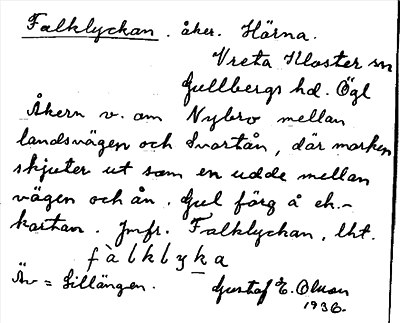 Falklyckan. åker. Härna.
Vreta Kloster sn
Gullbergs hd. Ögl
Åkern v. om Nybro mellan
landsvägen och Svartån, där marken
skjuter ut som en udde mellan
vägen och ån. Gul färg å ek.-
kartan. Jmfr. Falklyckan, lht.
fàlklyka
Äv = Lillängen.
Gustaf E. Olsson
1936.